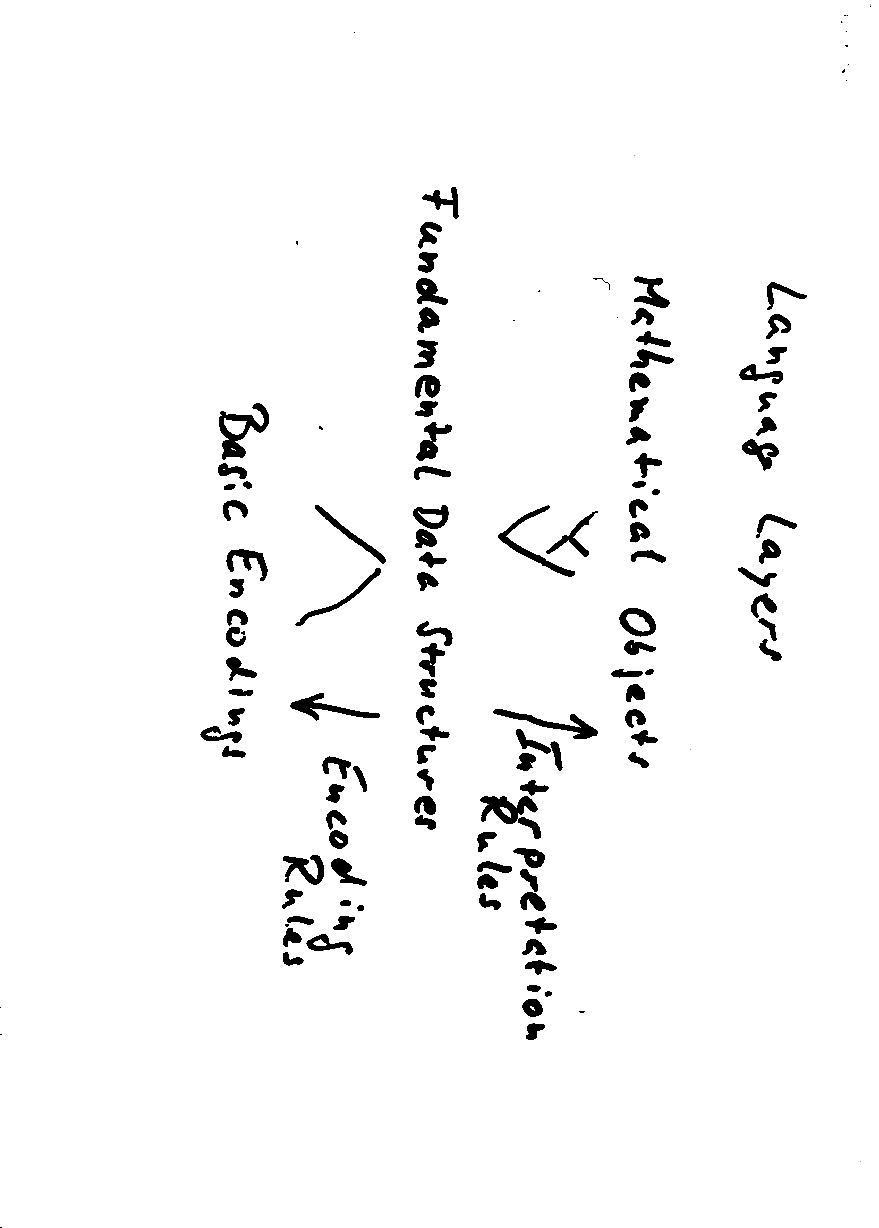 Language Layers
Mathematical Objects
Interpretation
Rules
Fundamental Data Structures
Encoding
Rules
Basic Encodings